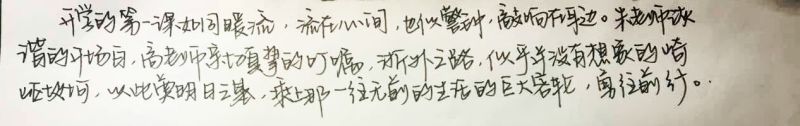 开学的第一课如同暖流，流在心间，也似警钟，敲响在耳边。朱老师诙
谐的开场白，高老师亲切真挚的叮嘱，浙外之路，似乎并没有想象的崎
岖坎坷，以此奠明日之基，乘上那一往无前的生活的巨大客轮，驶往前行。